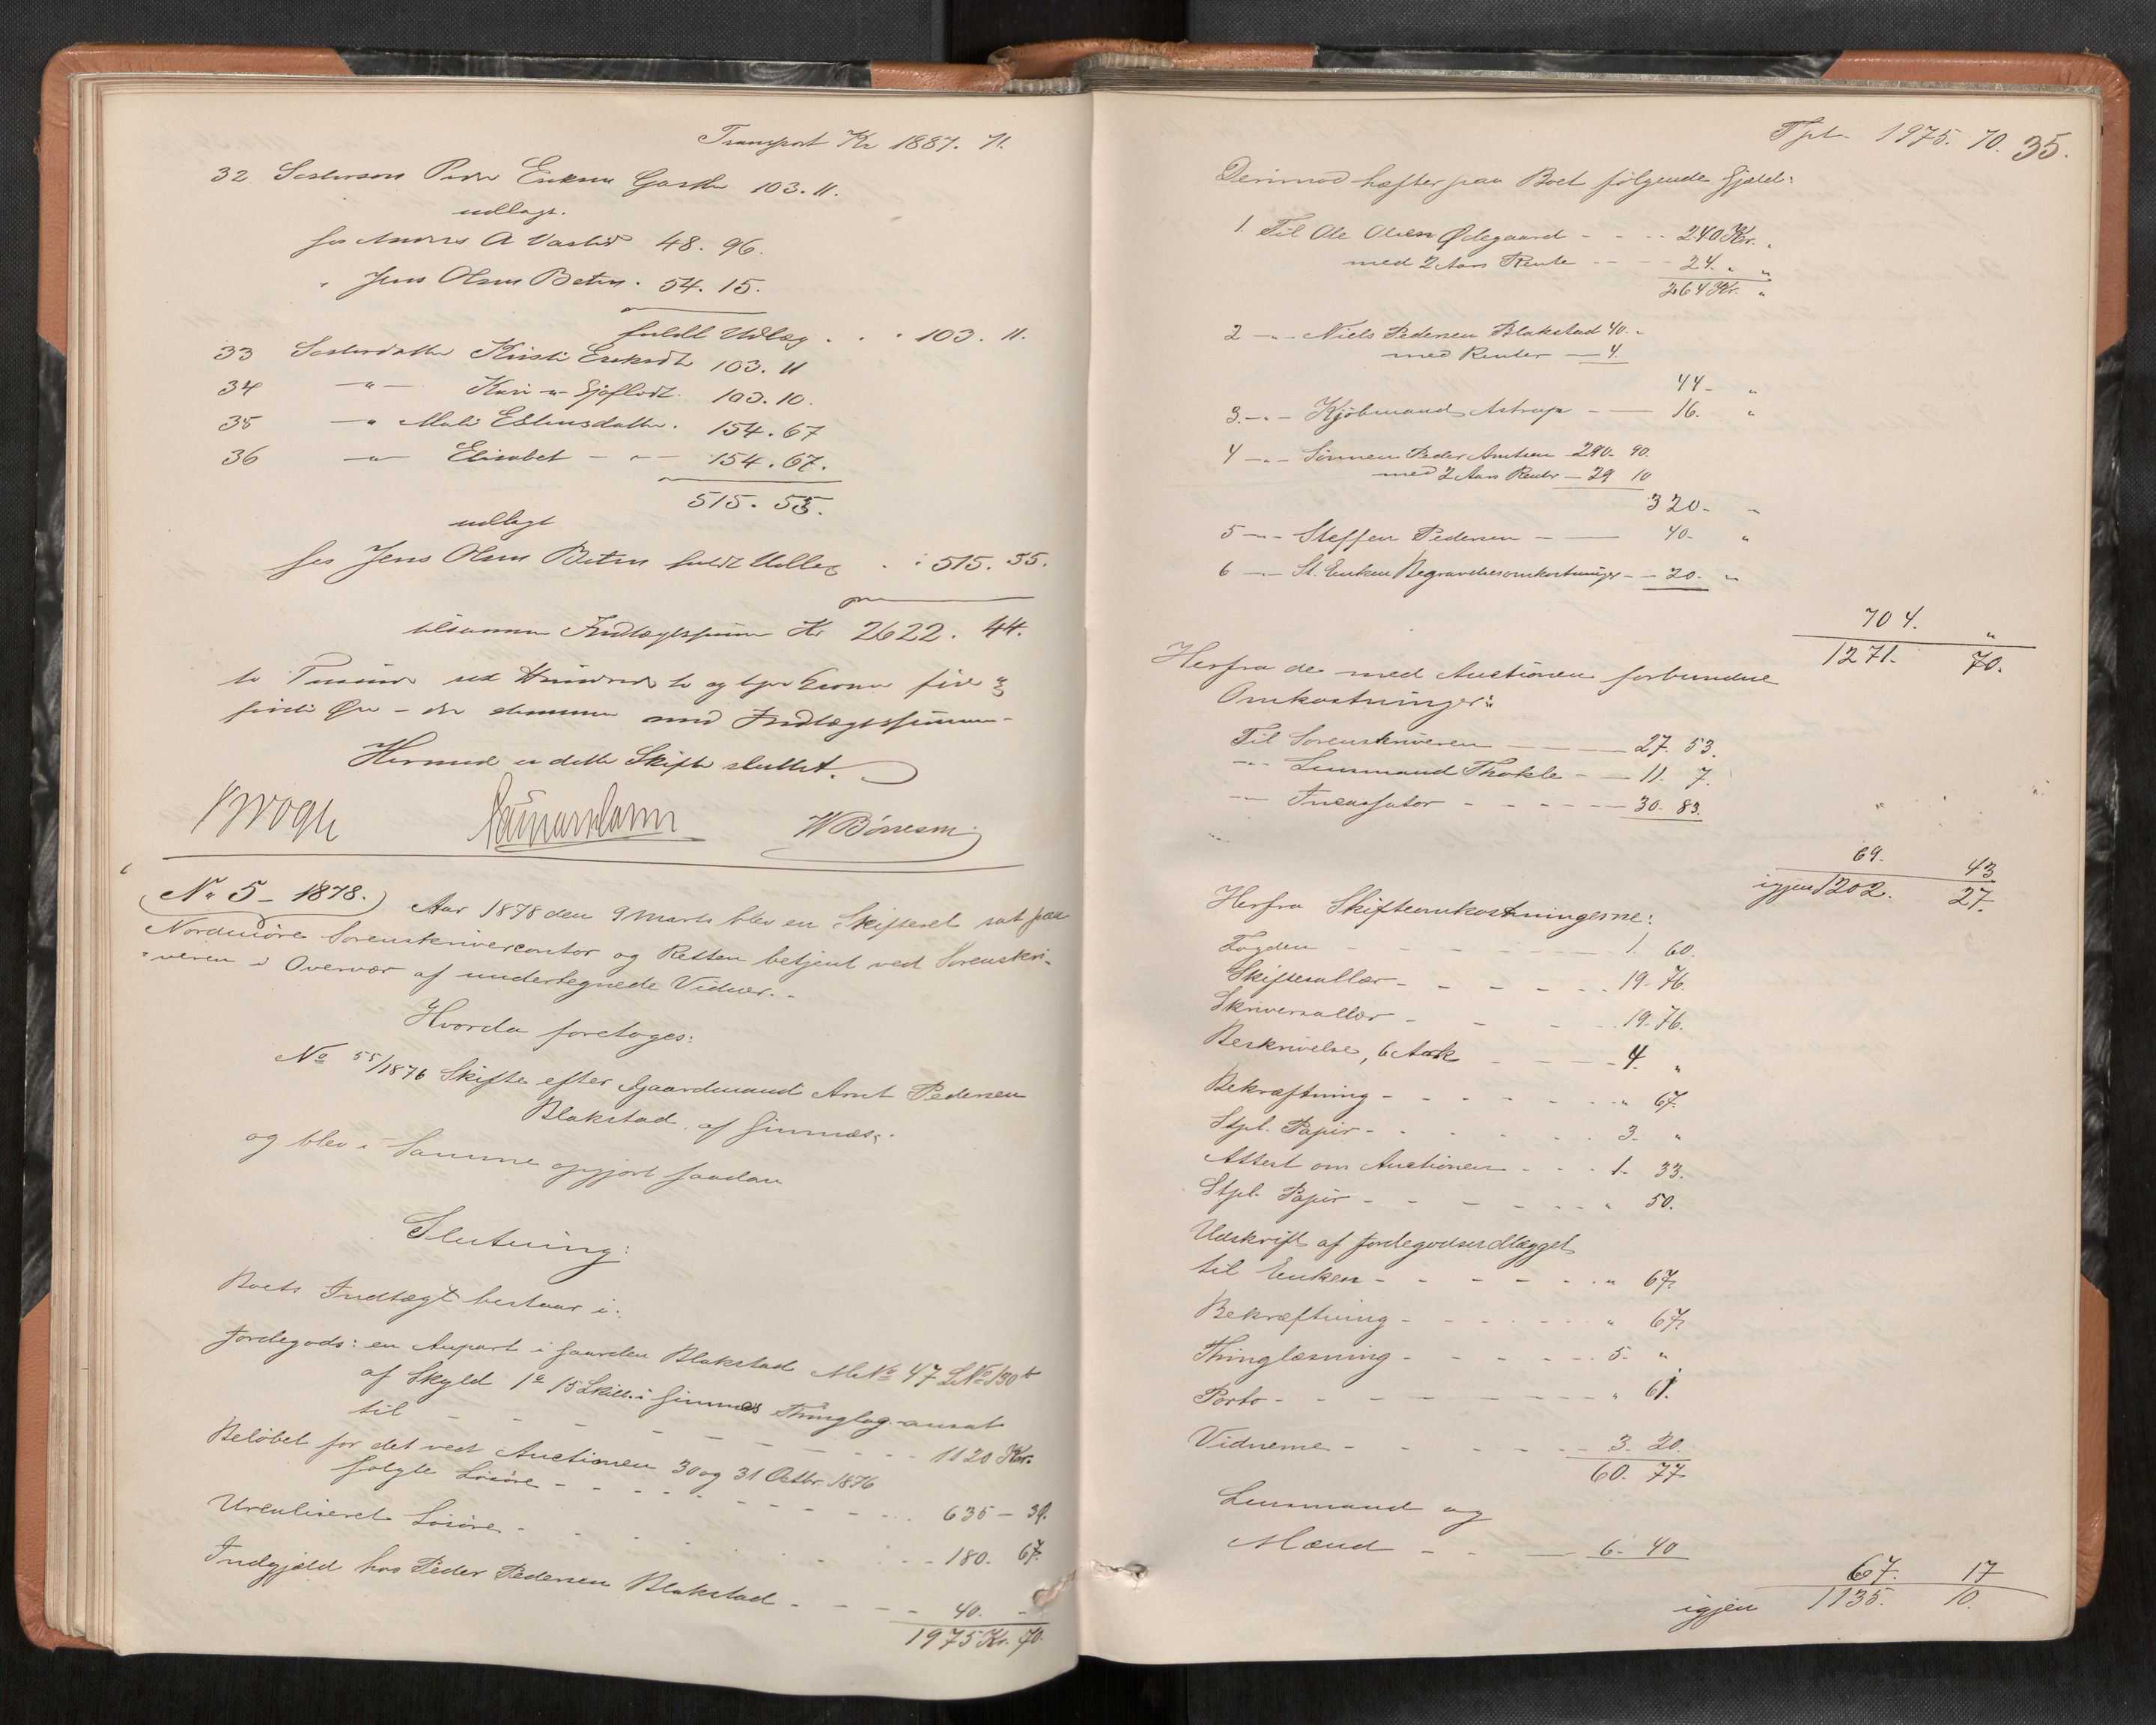 Transport Kr 1887. 71.
32 Søstersøn Peder Eriksen 103. 11.
udlagt.
hos Anders A Vaslid 48. 96.
" Jens Olsen Beten. 54. 15.
fuldt Udlæg . . 103. 11.
33 Søsterdatter Kirsti Eriksdt 103. 11
34 —"— Kari 103. 10.
35 —" Mali Estensdatter. 154. 67
36 —"— Elisabet —"— 154. 67.
515. 55.
udlagt
hos Jens Olsen Beten fuldt Udlæg . . 515. 55.
tilsammen Indtægtssum Kr 2622. 44.
to Tusinde sex Hundrede to og tyve Kroner fire og
firti Øre - der stemmer med Indtægtssummen -
Hermed er dette Skifte sluttet.
Krogh W Børresen
No 5 - 1878. Aar 1878 den 9 Marts blev en Skifteret sat paa
Nordmøre Sorenskrivercontor og Retten betjent ved Sorenskri-
veren i Overvær af undertegnede Vidner. -
Hvorda foretoges:
No 55/1876 Skifte efter Gaardmand Arnt Pedersen
Blakstad af Gimnæs.
og blev i Samme opgjort saadan
Slutning:
Boets Indtægt bestaar i:
Jordegods: en Anpart i Gaarden Blakstad M. No 47 L No 130 b
af Skyld 1 o 15 Skill. i Gimnes Thinglag ansat
til - - - - - - 1120 Kr.
Beløbet for det ved Auctionen 30 og 31 Octbr. 1876
solgte Løsøre - - - - - - 635 - 39.
Urealiseret Løsøre - - - - 180. 67.
Indgjæld hos Peder Pedersen Blakstad - - - 40. -
1975 Kr. 70.
Tpt 1975. 70. 35.
Derimod hæfter paa Boet følgende Gjæld:
1. Til Ole Olsen Ødegaard - - - 240 Kr. "
med 2 Aars Rente - - - 24. " "
264 Kr. "
2 —"— Niels Pedersen Blakstad 40. -
med Renter — 4.
44 - "
3. —"— Kjøbmand Astrup - — 16. "
4 —"— Sønnen Peder Arntsen 290. 90.
med 2 Aars Renter — 29 10
320 - "
5 —"— Steffen Pedersen - — 40. "
6 —"— til Enken Begravelsesomkostninger - - 20. "
704. "
1271. 70.
Herfra de med Auctionen forbundne
Omkostninger:
Til Sorenskriveren — — — 27. 53.
—"— Lensmand Thokle - — 11. 7.
—"— Incassator - - - - 30. 83.
69. 43
igjen 1202. 27.
Herfra Skifteomkostningerne:
Fogden - - - - 1. 60.
Skiftesallær - - - - 19. 76.
Skriversallær - - - 19. 76.
Beskrivelse, 6 Ark - - - 4. "
Bekræftning - - - - " 67.
Stpl. Papir - - - - 3. "
Attest om Auctionen - - - 1. 33.
Stpl. Papir - - - - " 50.
Udskrift af Jordegodsudlægget
til Enken - - - - - " 67.
Bekræftning - - - - " 67.
Thinglæsning - - - - 5. "
Porto - - - - " 61.
Vidnerne - - - - 3. 20.
60. 77
Lensmand og
Mænd - - - 6. 40
67. 17
igjen 1135. 10.